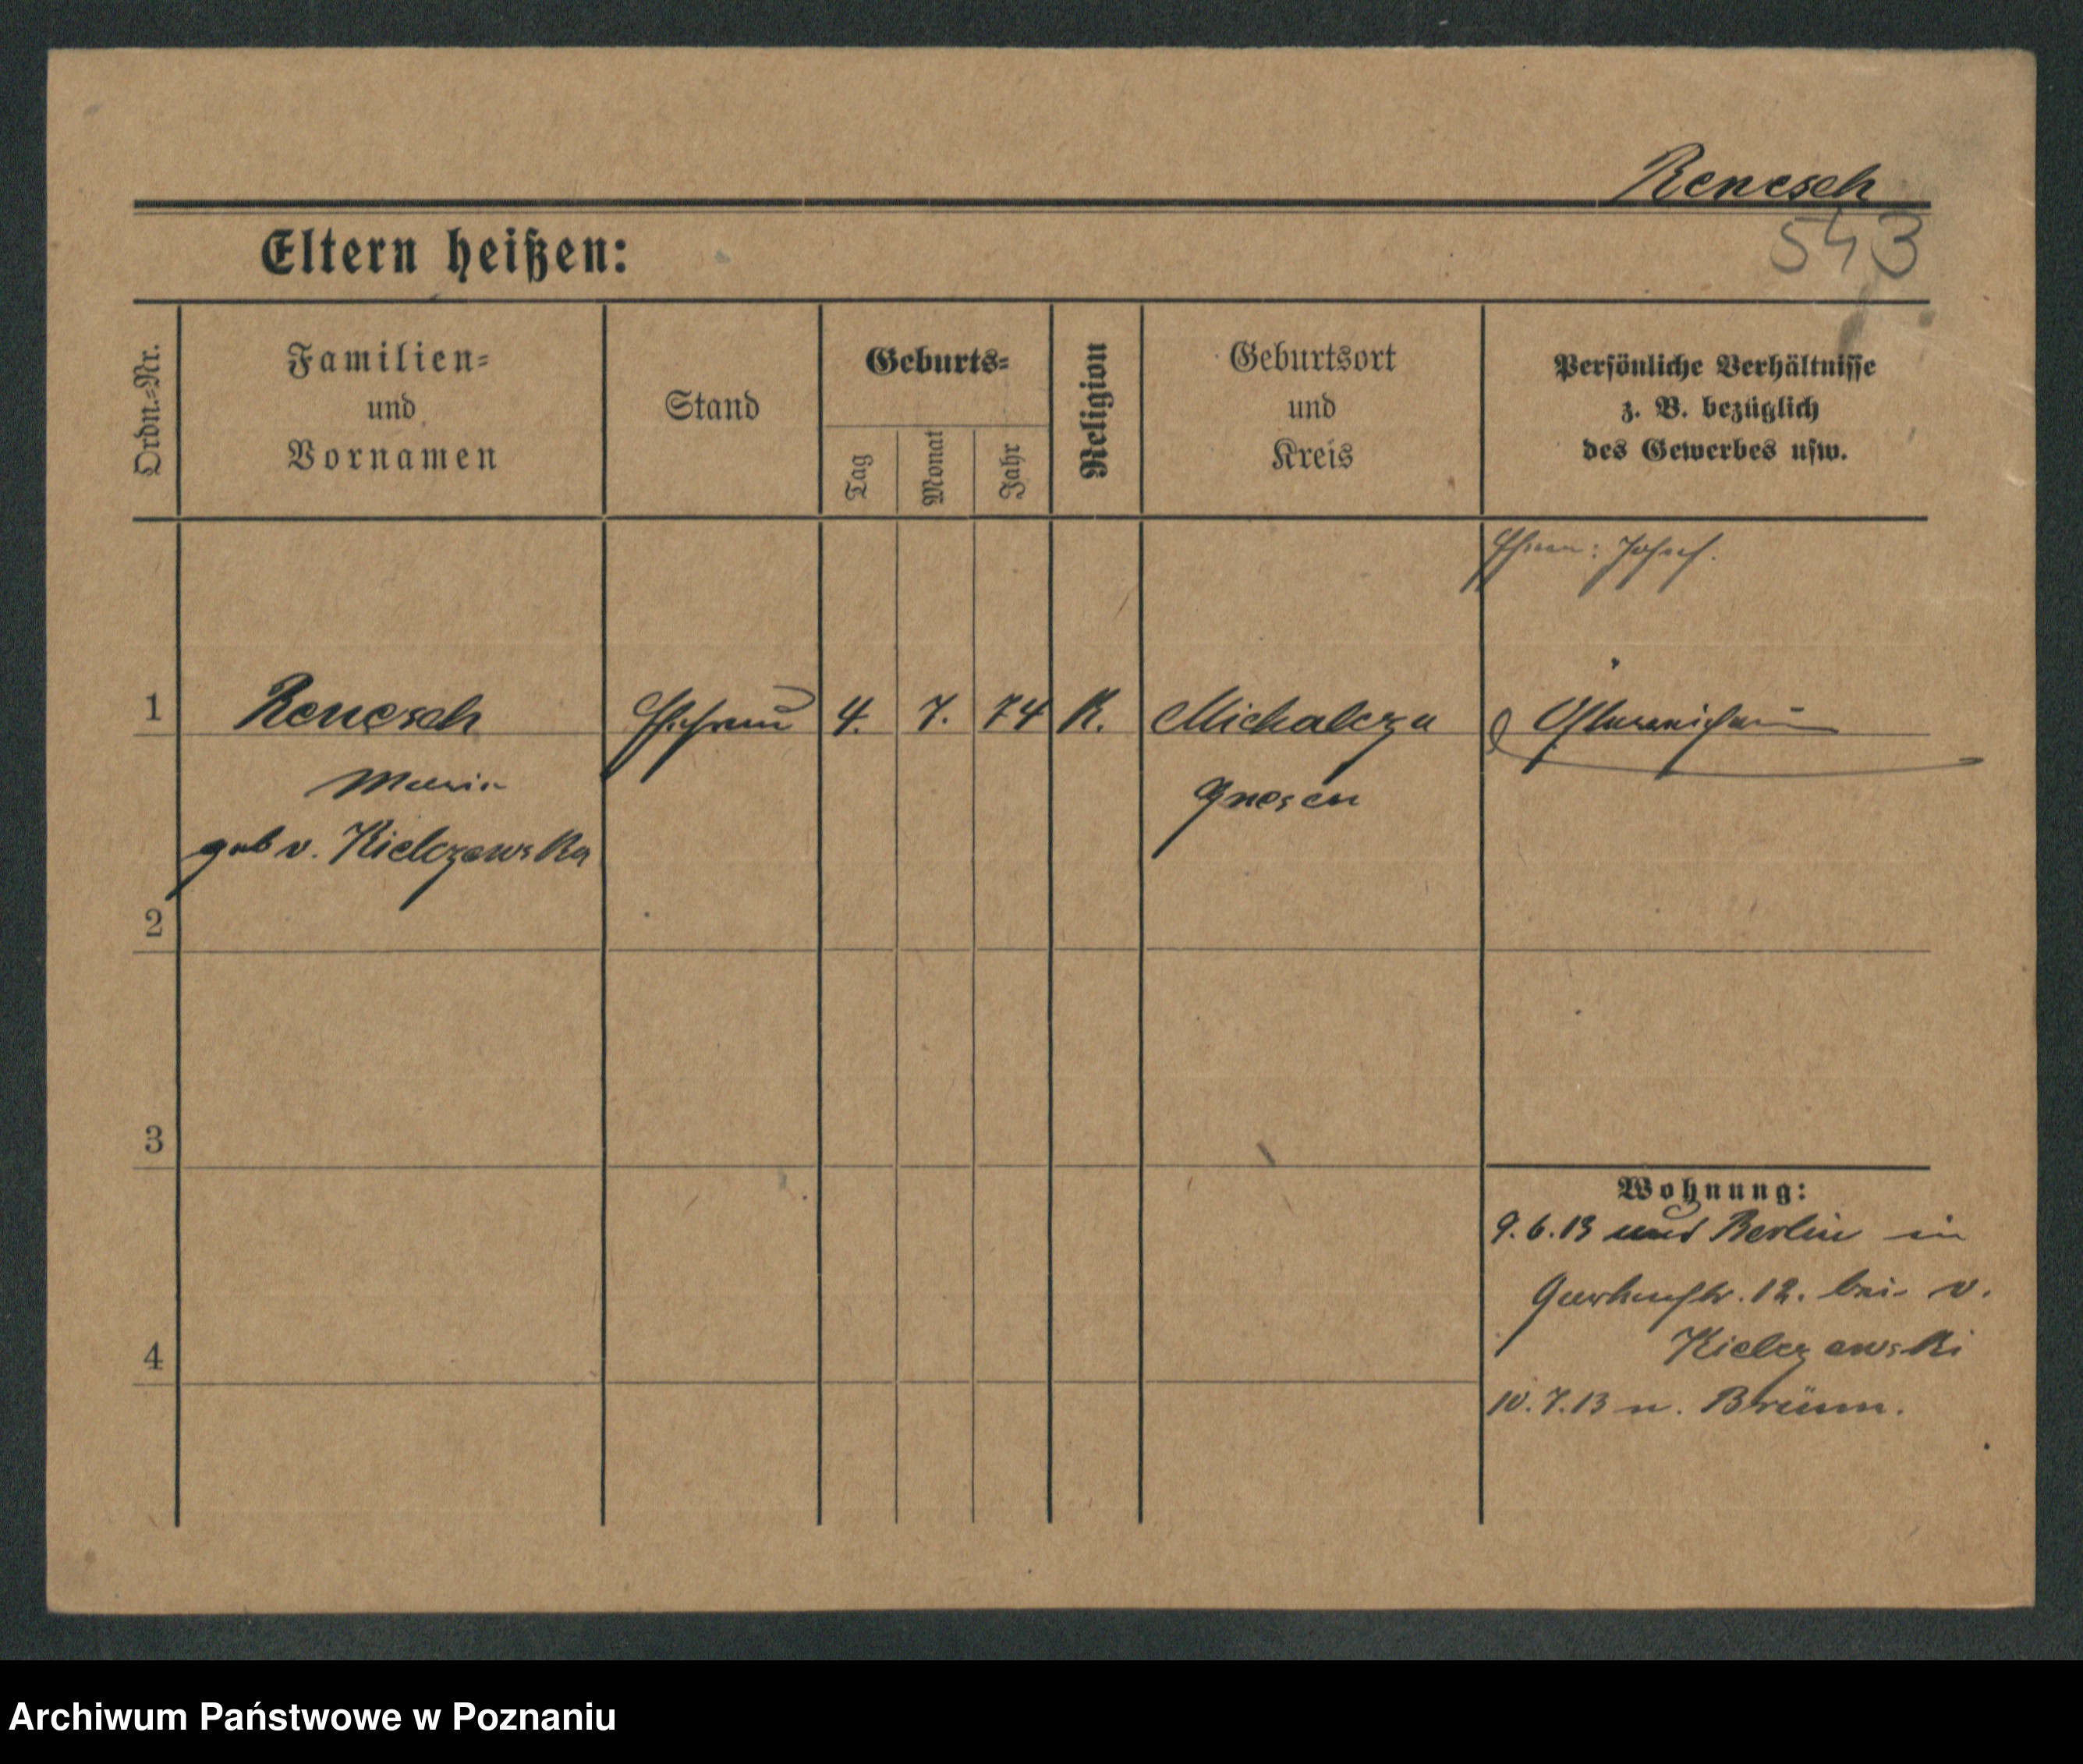 Renesch
543
Eltern heißen:
Ordn.-Nr.
Familien-
und
Vornamen
Stand
Geburts-
Tag
Monat
Jahr
Religion
Geburtsort
und
Kreis
Persönliche Verhältnisse
z. B. bezüglich
des Gewerbes usw.
Ehem: Josef.
1 Renesch Ehefrau 4. 7. 74 K. Michalcza Österreicherin
Maria Gnesen
geb v. Kielczewska
2
3
Wohnung:
9.6.13 aus Berlin in
12. bei v.
Kielczewski
4
10.7.13 n. Brünn.
Archiwum Państwowe w Poznaniu